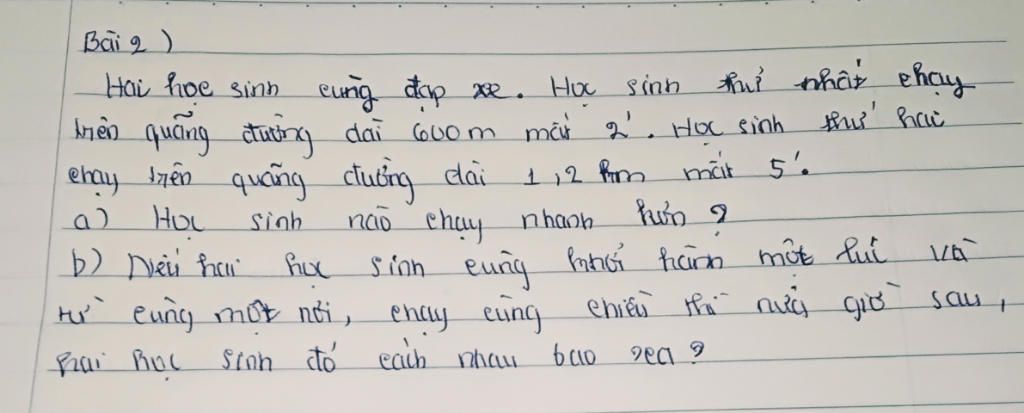 Bài 2)
Hai học sinh cùng đạp xe. Học sinh thứ nhất chạy
trên quãng đường dài 600m mất 2'. Học sinh thứ hai
chạy trên quãng đường dài 1,2 km mất 5'.
a) Học sinh nào chạy nhanh hơn?
b) Nếu hai học sinh cùng khởi hành một lúc và
từ cùng một nơi, chạy cùng chiều thì nửa giờ sau,
hai học sinh đó cách nhau bao xa?